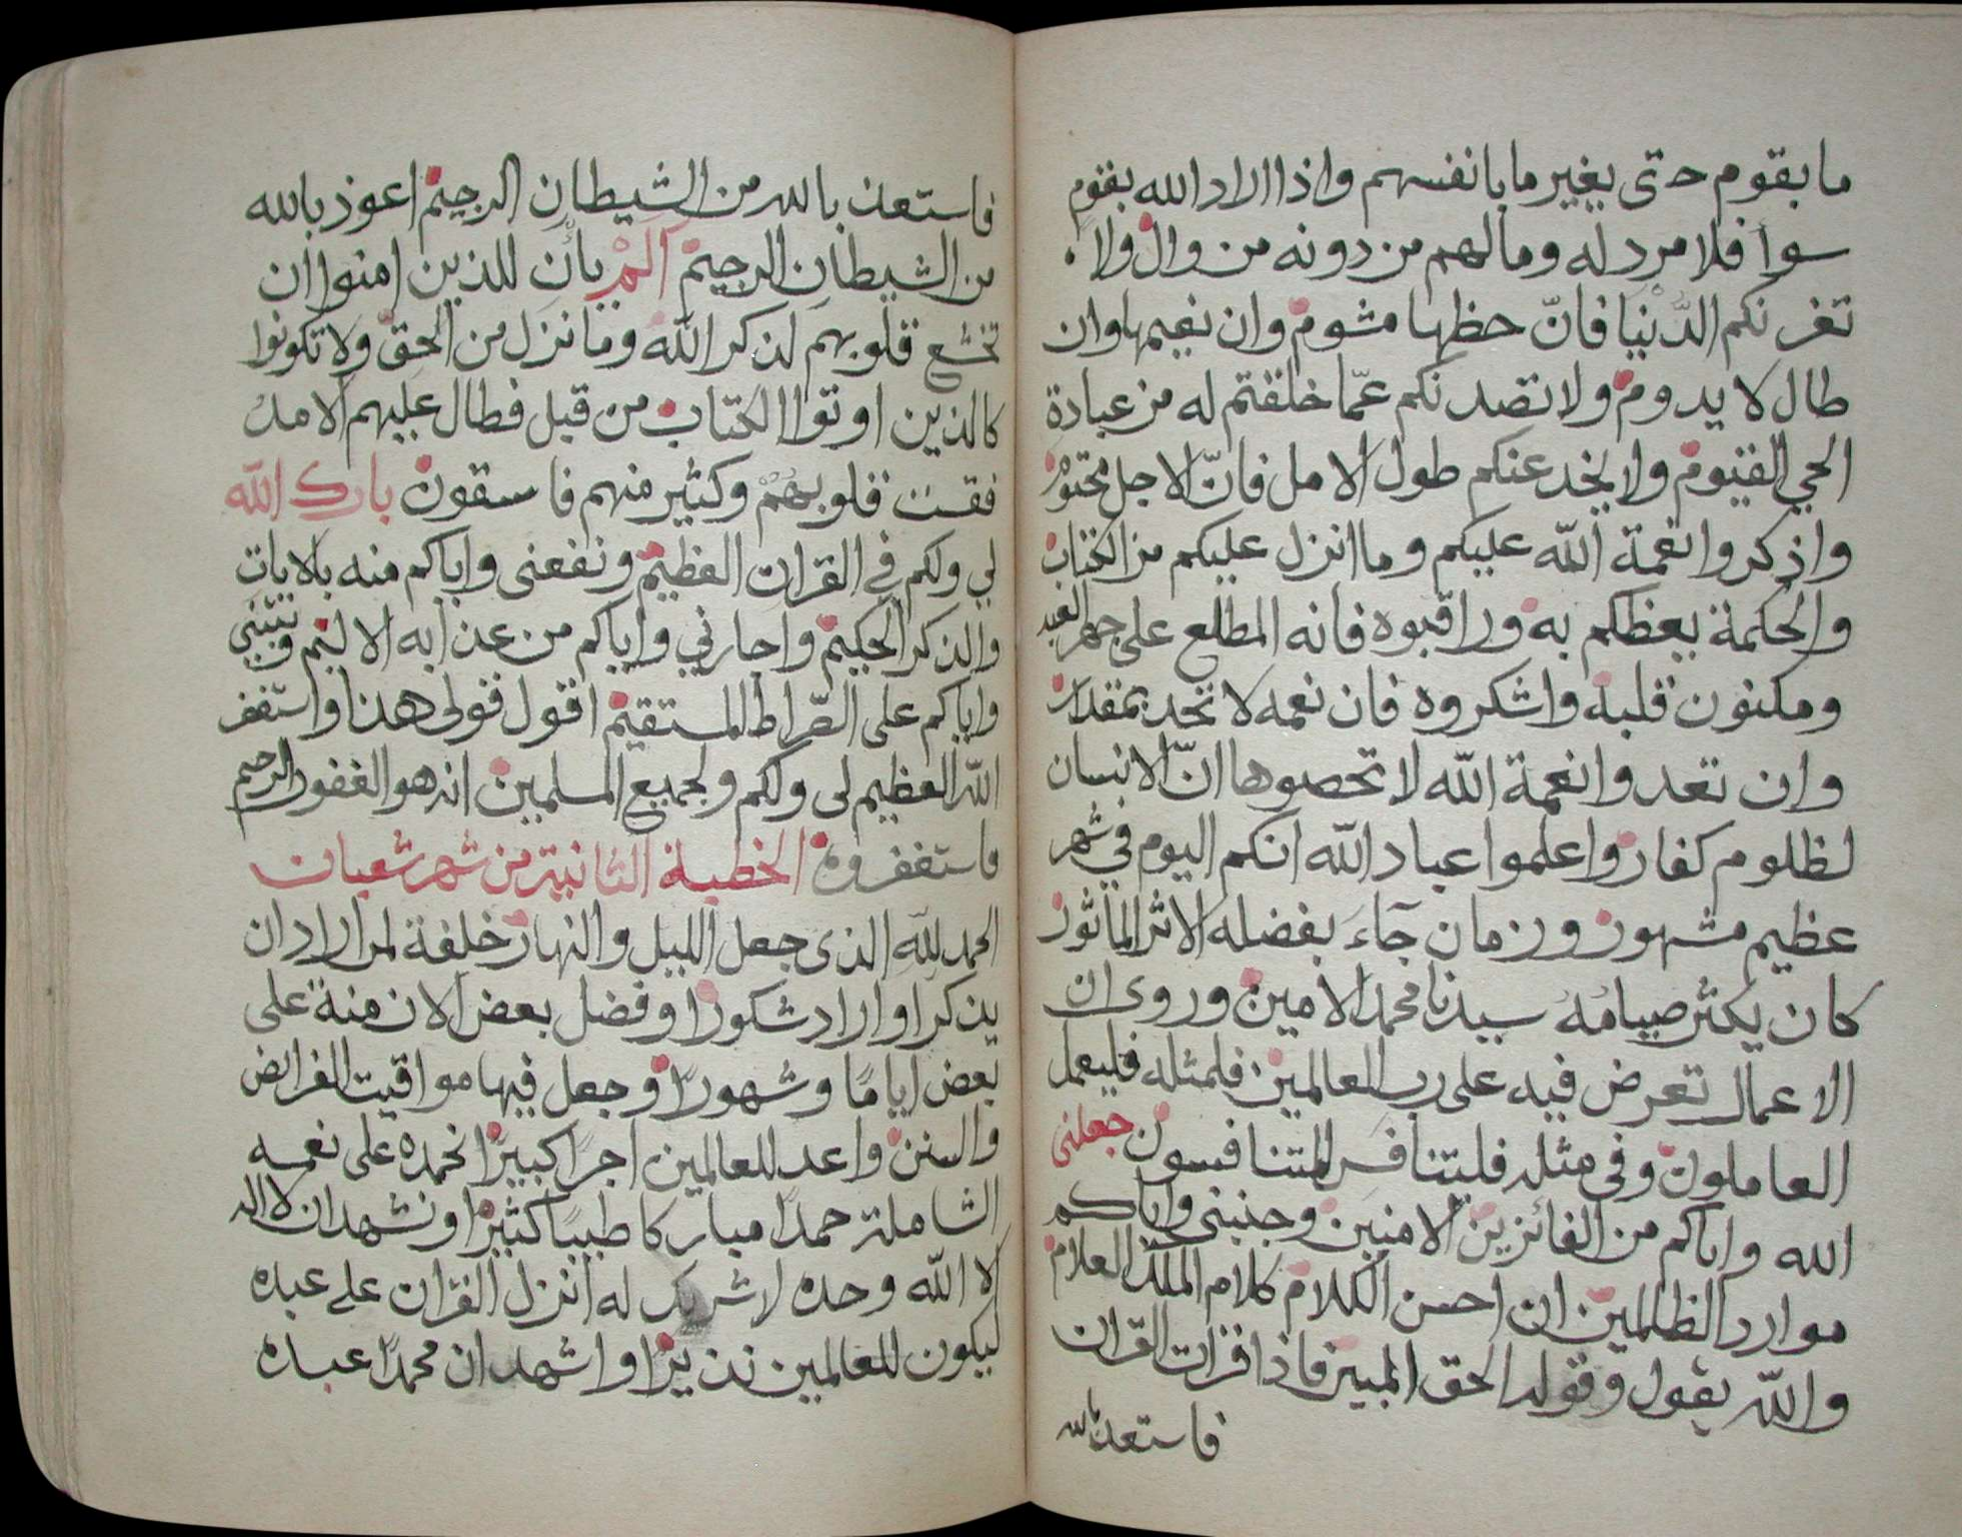 ما بقوم حتى يغير ما بانفسهم واذا اراد الله بقوم
سوأ فلا مرد له وما لهم من دونه من وال ولا
تغرنكم الدّنيا فانّ حظها مشوم وان نعيمها وان
طال لا يدوم ولا تصدنكم عمّا خلقتم له من عبادة
الحي القيوم ولا يخدعنكم طول الامل فانّ الاجل محتوم
واذكروا نعمة الله عليكم وما انزل عليكم من الكتاب
والحكمة يعظكم به وراقبوه فانه المطلع على جهر العبد
ومكنون قلبه واشكروه فان نعمه لا تحد بمقدار
وان تعدوا نعمة الله لا تحصوها انّ الانسان
لظلوم كفار واعلموا عباد الله انكم اليوم في شهر
عظيم مشهور وزمان جآءَ بفضله الاثر المأثور
كان يكثر صيامُهُ سيدنا محمد الامين وروى ان
الاعمال تعرض فيه على رب العالمين فلمثله فليعمل
العاملون وفي مثله فليتنافس المتنافسون جعلنى
الله واياكم من الفائزين الامنين وجنبنى واياكم
موارد الظالمين ان احسن الكلام كلام الملك العلام
والله يقول وقوله الحق المبين فاذا قرات القران
فاستعذ بالله
فاستعذ بالله من الشيطان الرجيم اعوذ بالله
من الشيطان الرجيم المْ يأن للذين امنوا ان
تخشع قلوبهم لذكر الله وما نزل من الحق ولا تكونوا
كالذين اوتوا الكتاب من قبل فطال عليهم الامد
فقست قلوبهمْ وكثير منهم فاسقون بارك الله
لي ولكم في القران العظيم ونفعنى واياكم منه بالايات
والذكر الحكيم واجارني واياكم من عذابه الاليم وثبتني
واياكم على الصّراط المستقيم اقول قولى هذا واستغفر
الله العظيم لى ولكم ولجميع المسلمين انه هو الغفور الرحيم
فاستغفروه الخطبة الثانية من شهر شعبان
الحمد للّهِ الذى جعل الليل والنهار خلفة لمن اراد ان
يذكر او اراد شكورًا وفضل بعض الازمنة على
بعض ايامًا وشهورًا وجعل فيها مواقيت الفرائض
والسنن واعد للعالمين اجرًا كبيرًا نحمده على نعمه
الشاملة حمدًا مباركا طيبًا كثيرًا ونشهد ان لا اله
الا الله وحده لا شريك له انزل القران على عبده
ليكون للعالمين نذيرًا واشهد ان محمدًا عبده